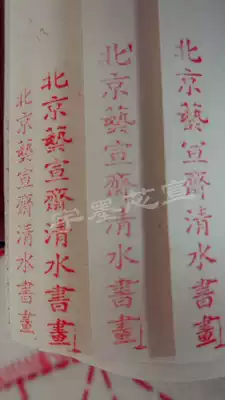 北京藝宣齋清水書畫
北京藝宣齋清水書畫
北京藝宣齋清水書畫
北京藝宣齋清水書畫
字墨芯宣